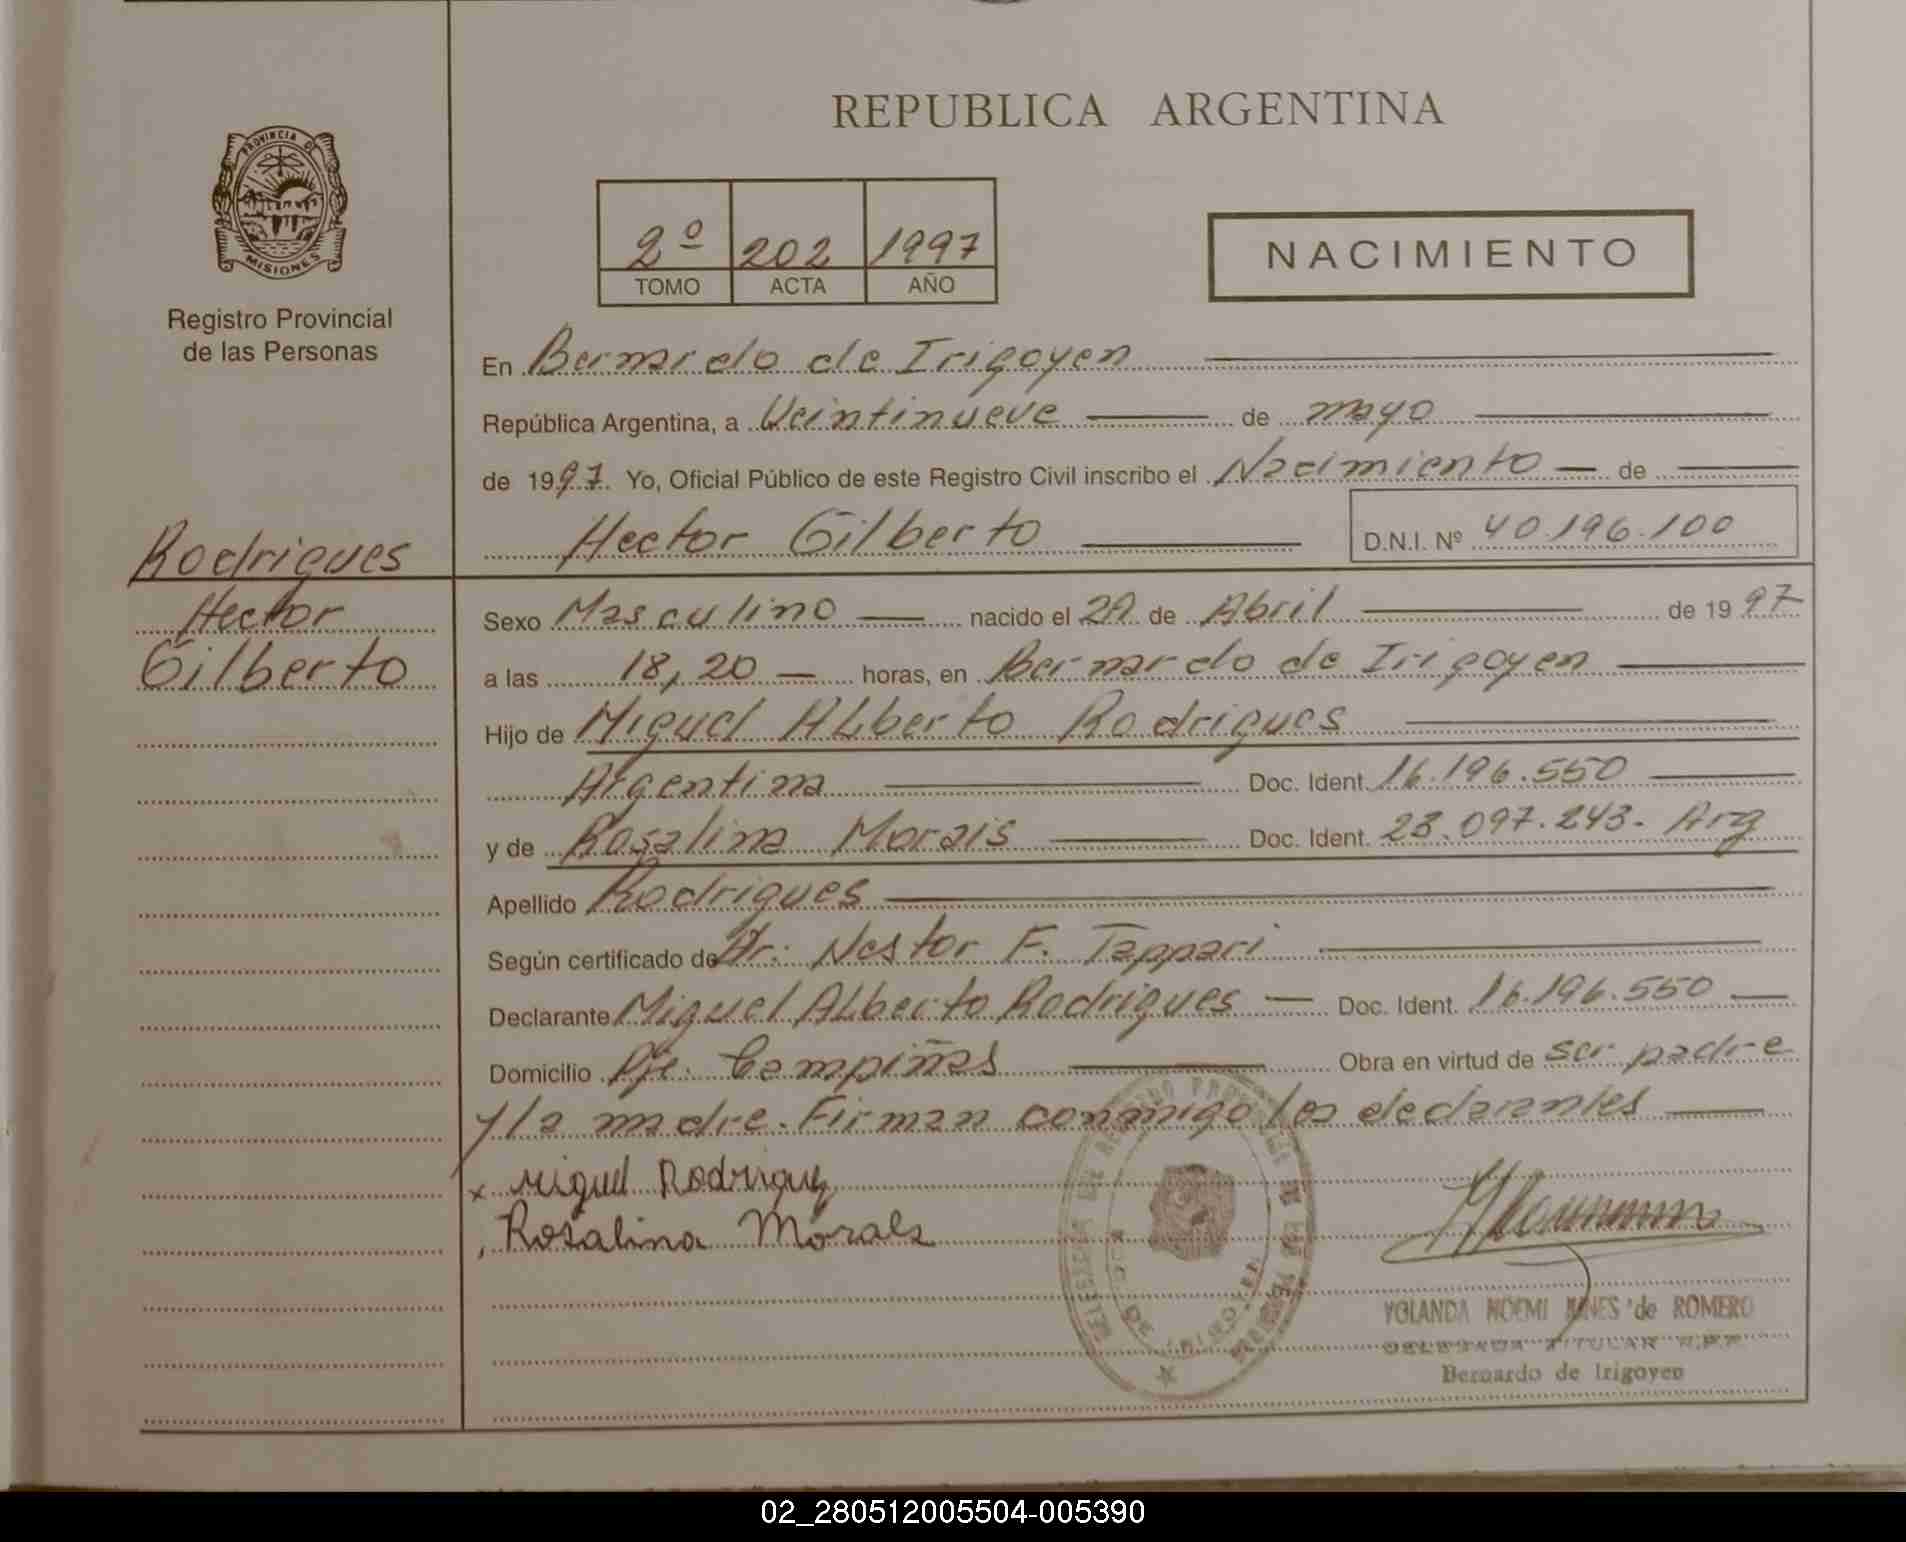 REPUBLICA ARGENTINA
PROVINCIA DE
MISIONES
Registro Provincial
de las Personas
2º 202 1997
TOMO ACTA AÑO
NACIMIENTO
En Bernardo de Irigoyen
República Argentina, a Veintinueve de mayo
de 1997. Yo, Oficial Público de este Registro Civil inscribo el Nacimiento de
Hector Gilberto D.N.I. Nº 40.196.100
Rodrigues
Hector
Gilberto
Sexo Masculino nacido el 29 de Abril de 1997
a las 18,20 horas, en Bernardo de Irigoyen
Hijo de Miguel ALberto Rodrigues
Argentina Doc. Ident. 16.196.550
y de Rosalina Morais Doc. Ident. 23.097.243. Arg
Apellido Rodrigues
Según certificado de Dr. Nestor F. Tappari
Declarante Miguel ALberto Rodrigues Doc. Ident. 16.196.550
Domicilio Pje. Campiñas Obra en virtud de ser padre
y la madre. Firman conmigo los declarantes
x Miguel Rodriguez
Rosalina Morais
YOLANDA NOEMI de ROMERO
DELEGADA TITULAR R.P.P.
Bernardo de Irigoyen
02_280512005504-005390